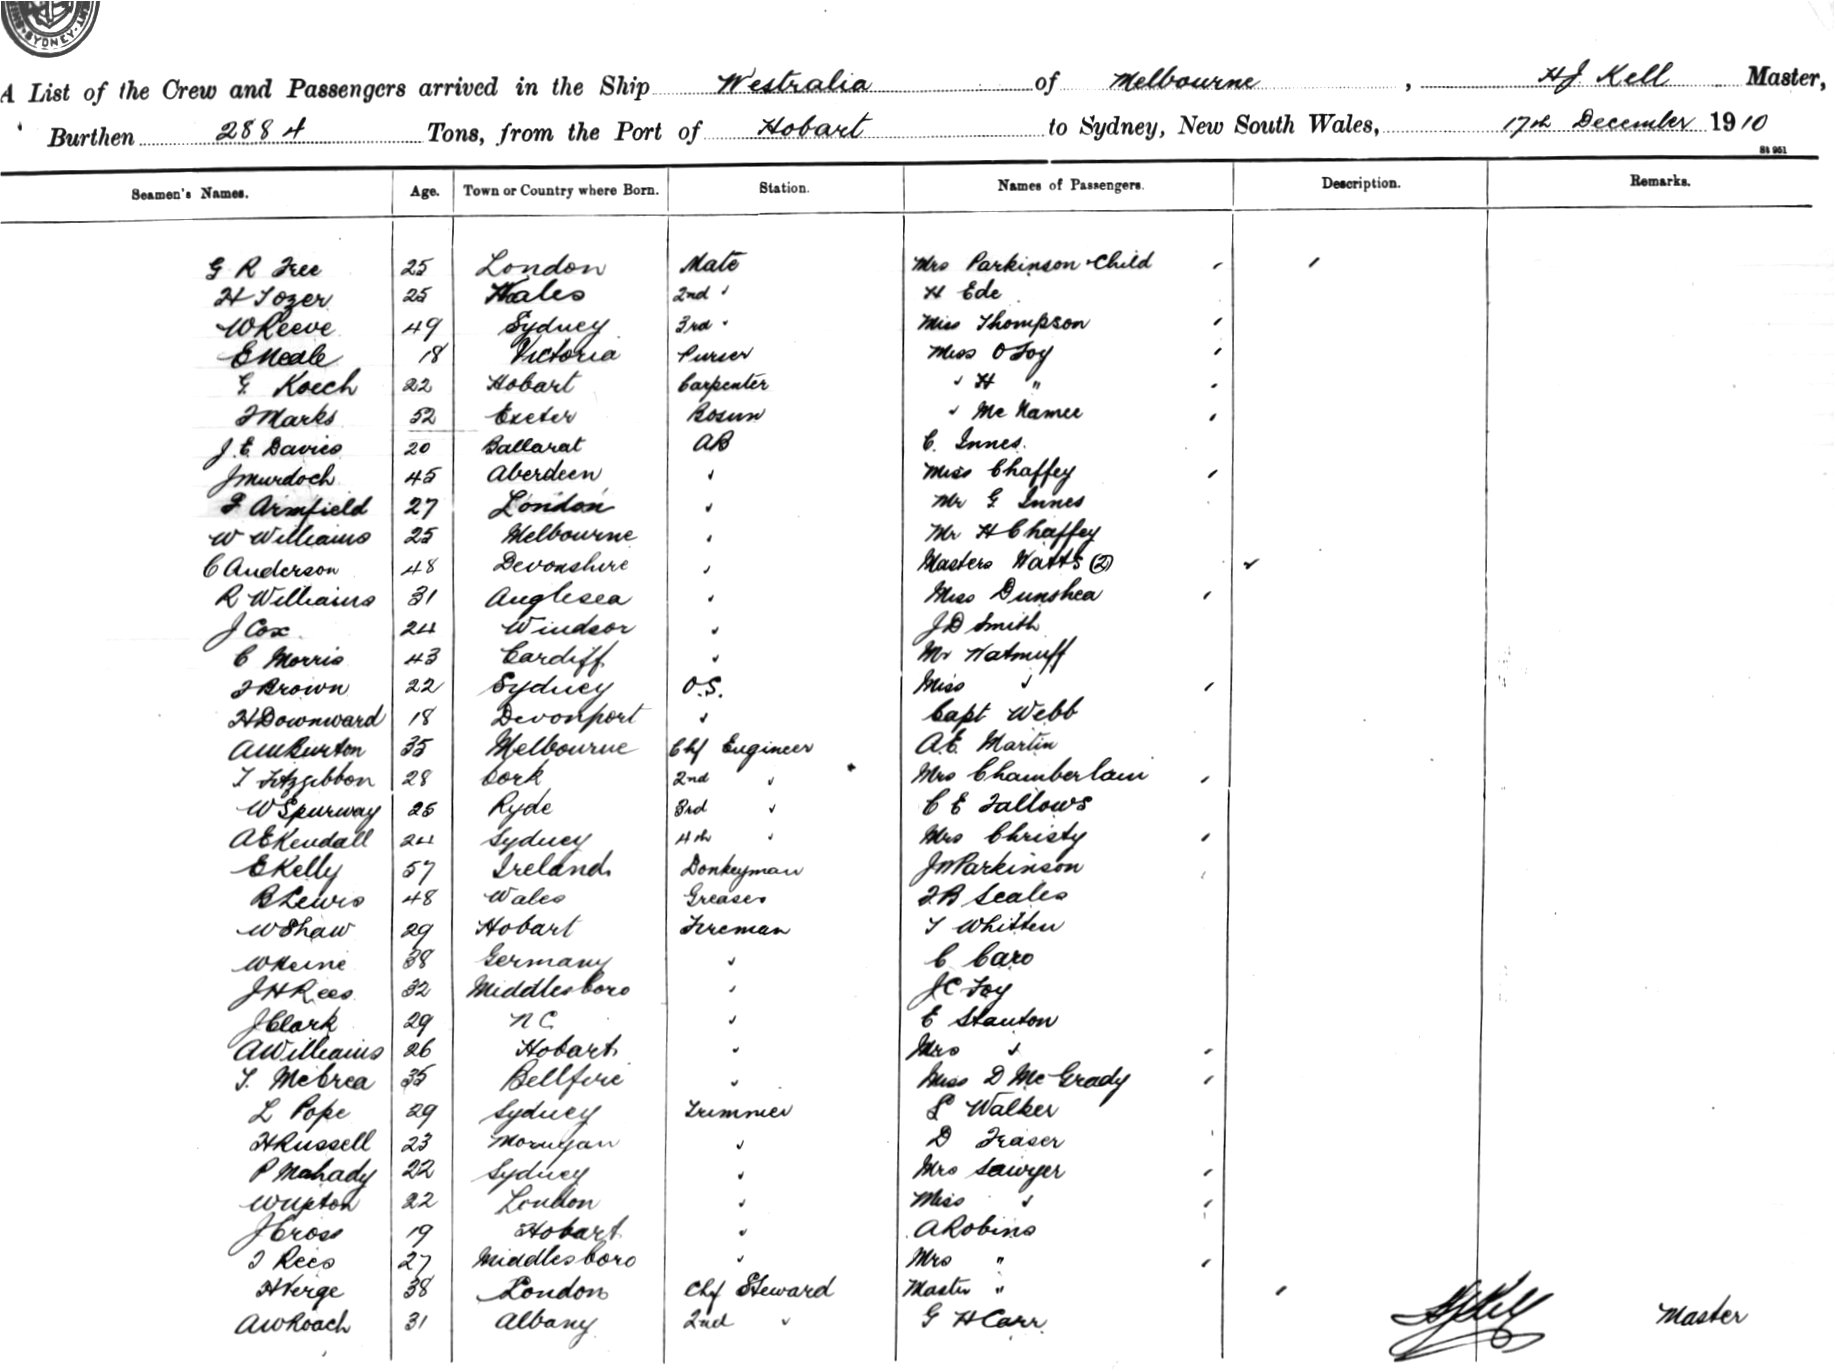 SYDNEY
A List of the Crew and Passengers arrived in the Ship Westralia of Melbourne, H J Kell Master,
Burthen 2884 Tons, from the Port of Hobart to Sydney, New South Wales, 17th December 1910
St 951
Seamen's Names. Age. Town or Country where Born. Station. Names of Passengers. Description. Remarks.
G R Tree 25 London Mate Mrs Parkinson & Child
H Tozer 25 Wales 2nd " H Ede
W Reeve 49 Sydney 3rd " Miss Thompson
E Neale 18 Victoria Purser Miss O Foy
G Koech 22 Hobart Carpenter " H "
F Marks 52 Exeter Bosun " McNamee
J. E. Davies 20 Ballarat AB C. Innes.
J Murdoch 45 Aberdeen " Miss Chaffey
F Armfield 27 London " Mr G Innes
W Williams 25 Melbourne " Mr H Chaffey
C Anderson 48 Devonshire " Masters Watts (2)
R Williams 31 Anglesea " Miss Dunshea
J Cox 24 Windsor " J D Smith
C Morris 43 Cardiff " Mr Watmuff
F Brown 22 Sydney O.S. Miss "
H Downward 18 Devonport " Capt Webb
A W Burton 35 Melbourne Chf Engineer A.E. Martin
T Fitzgibbon 28 Cork 2nd " Mrs Chamberlain
W Spurway 25 Ryde 3rd " C E Fallows
A E Kendall 24 Sydney 4th " Mrs Christy
E Kelly 57 Ireland Donkeyman J W Parkinson
B Lewis 48 Wales Greaser F B Seales
W Shaw 29 Hobart Fireman T Whitten
W Heine 38 Germany " C Caro
J H Rees 32 Middlesboro " J C Foy
J Clark 29 N C " E Stanton
A Williams 26 Hobart " Mrs "
T. McCrea 35 " Miss D McGrady
L Pope 29 Sydney Trimmer S Walker
H Russell 23 " D Fraser
P Mahady 22 Sydney " Mrs Sawyer
W Upton 22 London " Miss "
J Cross 19 Hobart " A Robins
T Rees 27 Middlesboro " Mrs "
H Verge 38 London Chf Steward Master " H J Kell Master
A W Roach 31 Albany 2nd " G H Carr